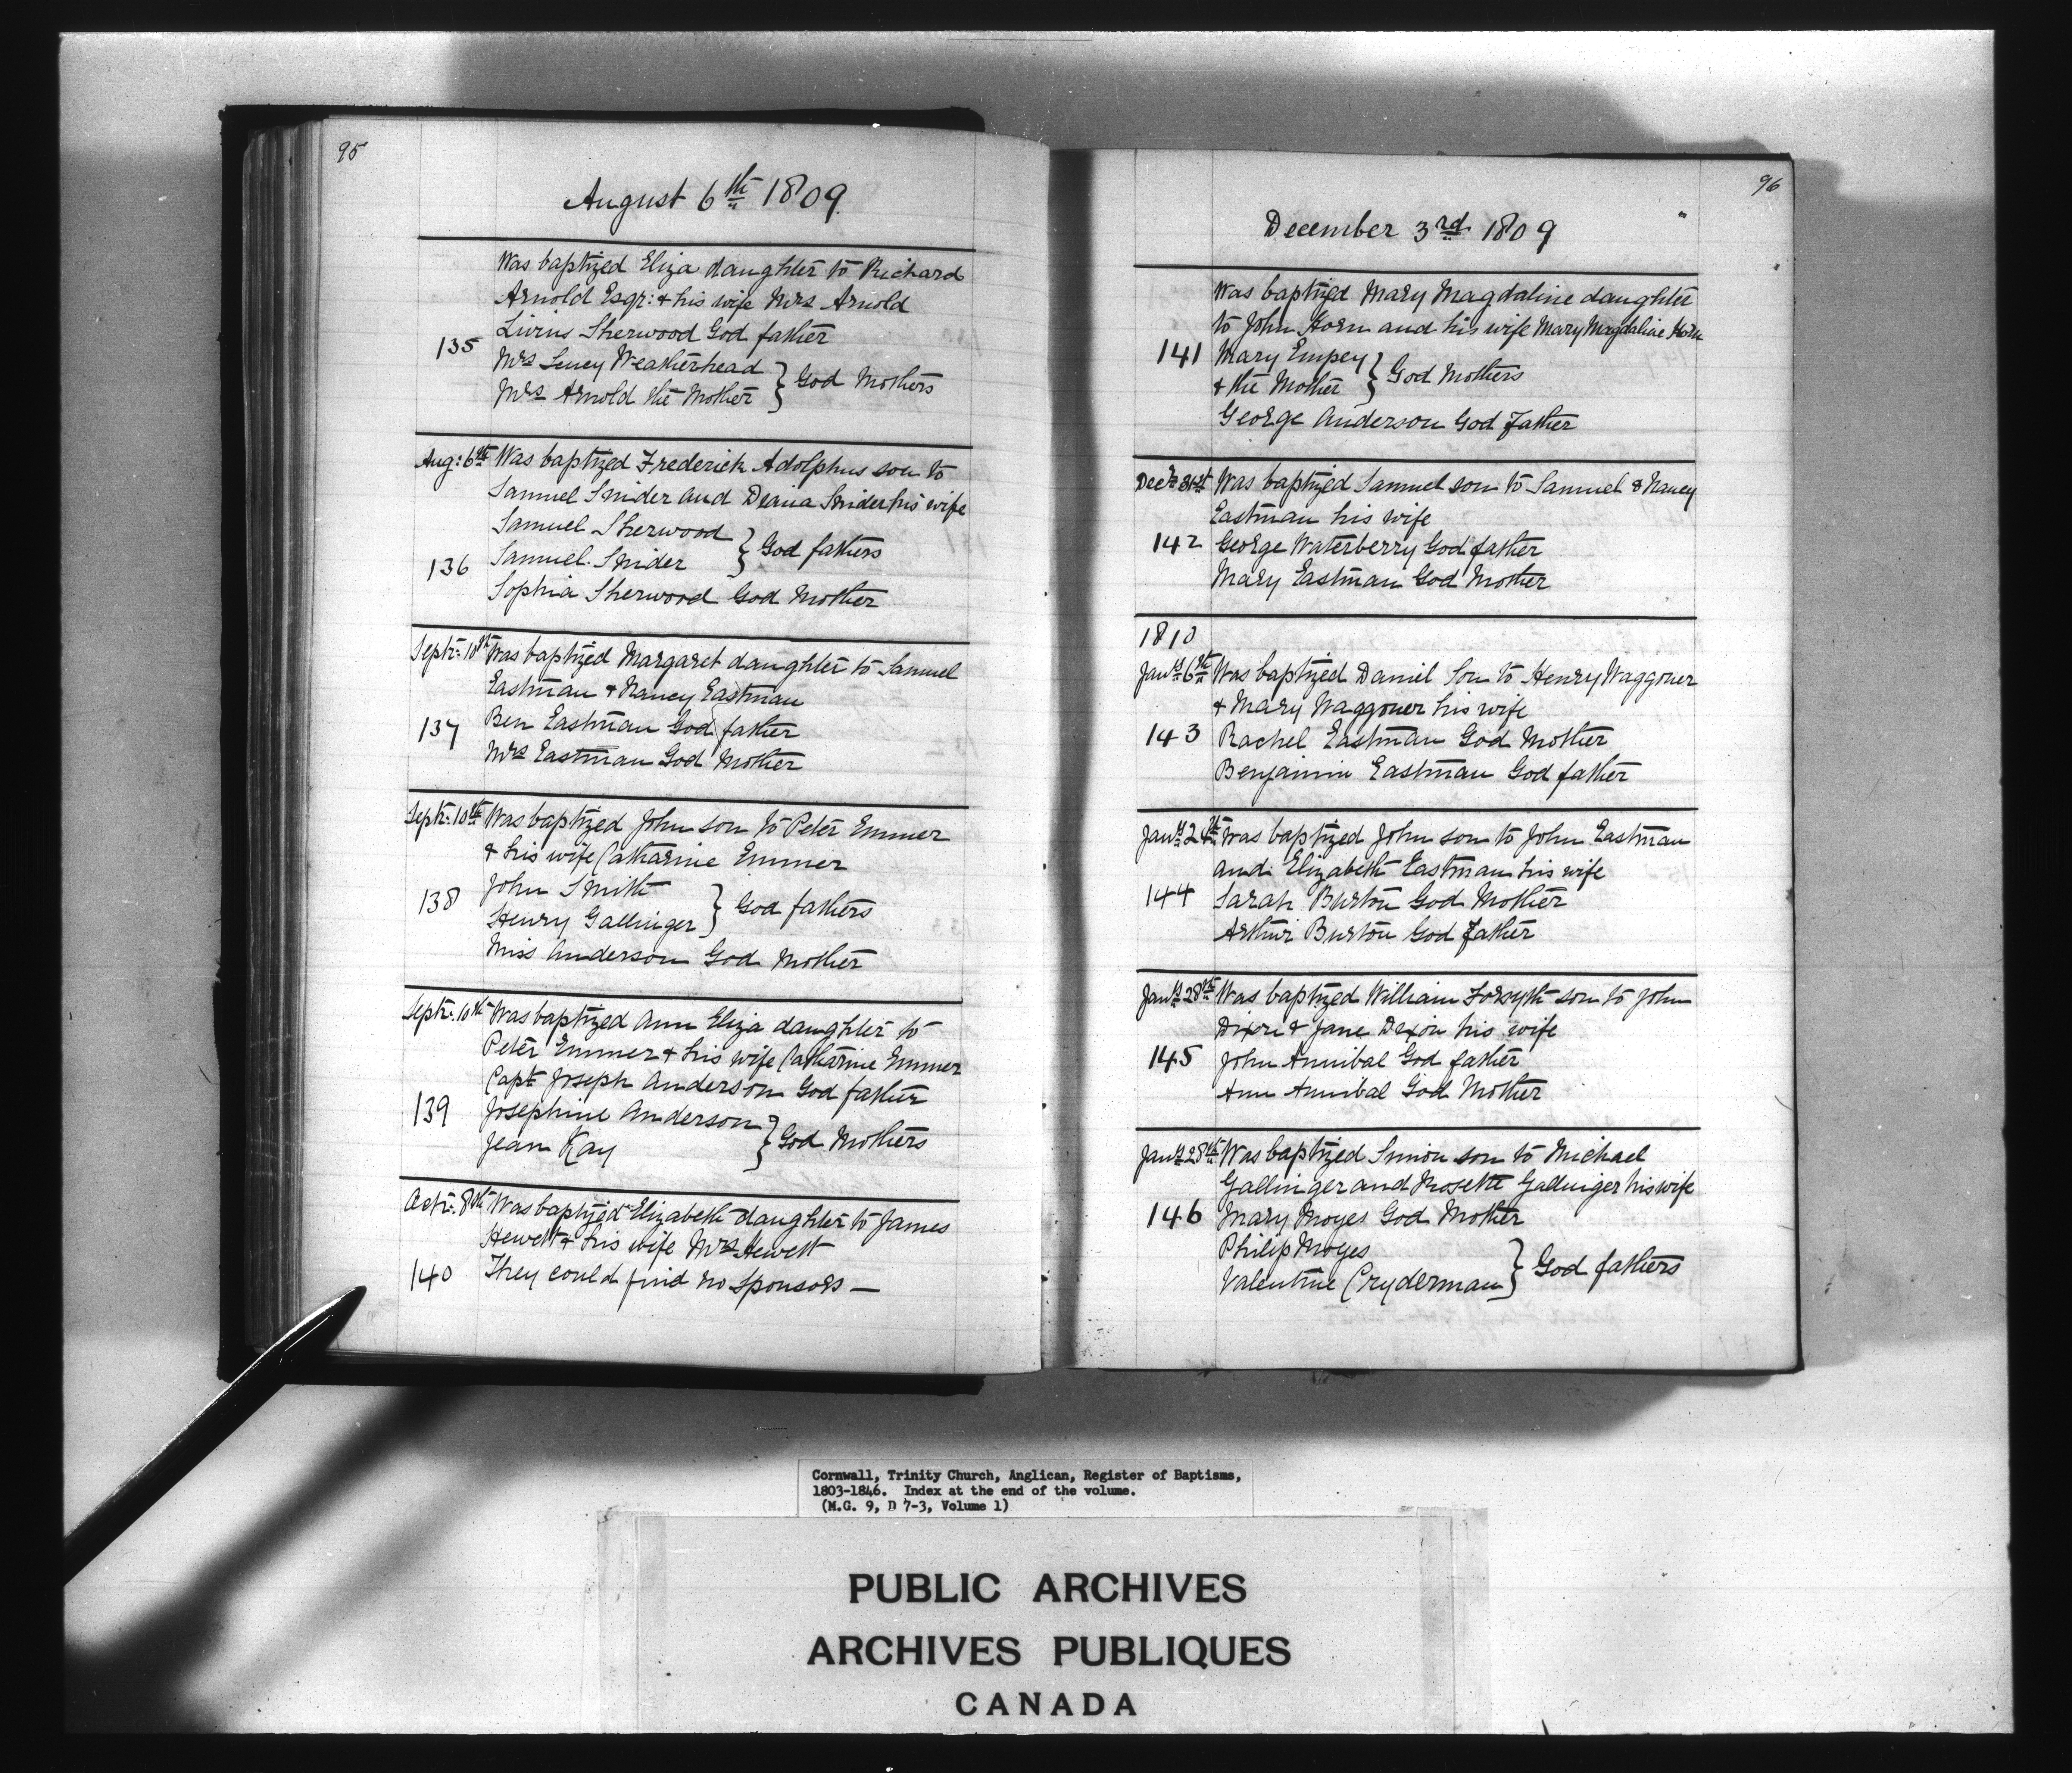 95
August 6th 1809
Was baptized Eliza daughter to Richard
Arnold Esqr: & his wife Mrs Arnold
Livius Sherwood God father
135
Mrs Lucey Weatherhead
Mrs Arnold the Mother } God Mothers
Aug: 6th Was baptized Frederick Adolphus son to
Samuel Snider and Diana Snider his wife
Samuel Sherwood
Samuel Snider } God fathers
136
Sophia Sherwood God Mother
Septr: 10th Was baptized Margaret daughter to Samuel
Eastman & Nancy Eastman
137 Ben Eastman God father
Mrs Eastman God Mother
Septr: 10th Was baptized John son to Peter Emmer
& his wife Catharine Emmer
138 John Smith
Henry Gallinger } God fathers
Miss Anderson God Mother
Septr: 10th Was baptized Ann Eliza daughter to
Peter Emmer & his wife Catharine Emmer
Capt Joseph Anderson God father
139 Josephine Anderson
Jean Kay } God Mothers
Octr: 8th Was baptized Elizabeth daughter to James
Hewett & his wife Mrs Hewett
140 They could find no sponsors —
96
December 3rd 1809
Was baptized Mary Magdaline daughter
to John Horn and his wife Mary Magdaline Horn
141 Mary Empey
& the Mother } God Mothers
George Anderson God Father
Decr 31st Was baptized Samuel son to Samuel & Nancy
Eastman his wife
142 George Waterberry God father
Mary Eastman God Mother
1810
Jany 6th Was baptized Daniel Son to Henry Waggoner
& Mary Waggoner his wife
143 Rachel Eastman God Mother
Benjamin Eastman God father
Jany 24th Was baptized John son to John Eastman
and Elizabeth Eastman his wife
144 Sarah Burton God Mother
Arthur Burton God Father
Jany 28th Was baptized William Forsyth son to John
Dixon & Jane Dixon his wife
145 John Annibal God father
Ann Annibal God Mother
Jany 28th Was baptized Simon son to Michael
Gallinger and Rosette Gallinger his wife
146 Mary Moyes God Mother
Philip Moyes
Valentine Cryderman } God fathers
Cornwall, Trinity Church, Anglican, Register of Baptisms,
1803-1846. Index at the end of the volume.
(M.G. 9, D 7-3, Volume 1)
PUBLIC ARCHIVES
ARCHIVES PUBLIQUES
CANADA